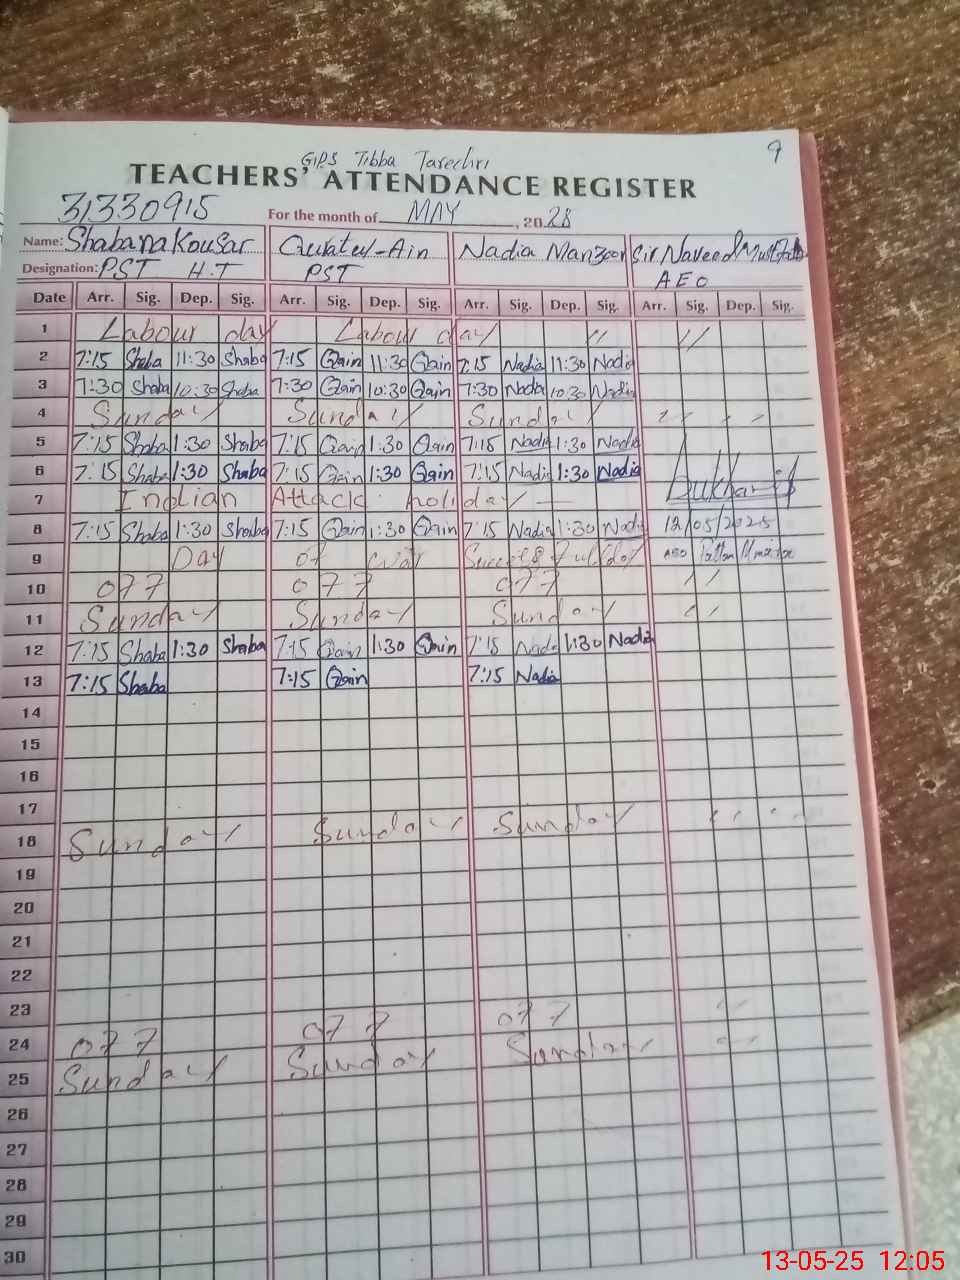 9
GPS Tibba Tarechri
TEACHERS' ATTENDANCE REGISTER
31330915 For the month of MAY, 2028
Name: Shabana Kousar Quratul-Ain Nadia Manzoor Sir Naveed
Designation: PST H.T PST AEO
Date Arr. Sig. Dep. Sig. Arr. Sig. Dep. Sig. Arr. Sig. Dep. Sig. Arr. Sig. Dep. Sig.
1 Labour day Labour day " "
2 7:15 Shaba 11:30 Shaba 7:15 Qain 11:30 Qain 7:15 Nadia 11:30 Nadia
3 7:30 Shaba 10:30 Shaba 7:30 Qain 10:30 Qain 7:30 Nadia 10:30 Nadia
4 Sunday Sunday Sunday " "
5 7:15 Shaba 1:30 Shaba 7:15 Qain 1:30 Qain 7:15 Nadia 1:30 Nadia
6 7:15 Shaba 1:30 Shaba 7:15 Qain 1:30 Qain 7:15 Nadia 1:30 Nadia
7 Indian Attack holiday
8 7:15 Shaba 1:30 Shaba 7:15 Qain 1:30 Qain 7:15 Nadia 1:30 Nadia 12/05/2025
9 Day of War AEO
10 off off off "
11 Sunday Sunday Sunday "
12 7:15 Shaba 1:30 Shaba 7:15 Qain 1:30 Qain 7:15 Nadia 1:30 Nadia
13 7:15 Shaba 7:15 Qain 7:15 Nadia
14
15
16
17
18 Sunday Sunday Sunday " "
19
20
21
22
23
24 off off off "
25 Sunday Sunday Sunday "
26
27
28
29
30
13-05-25 12:05